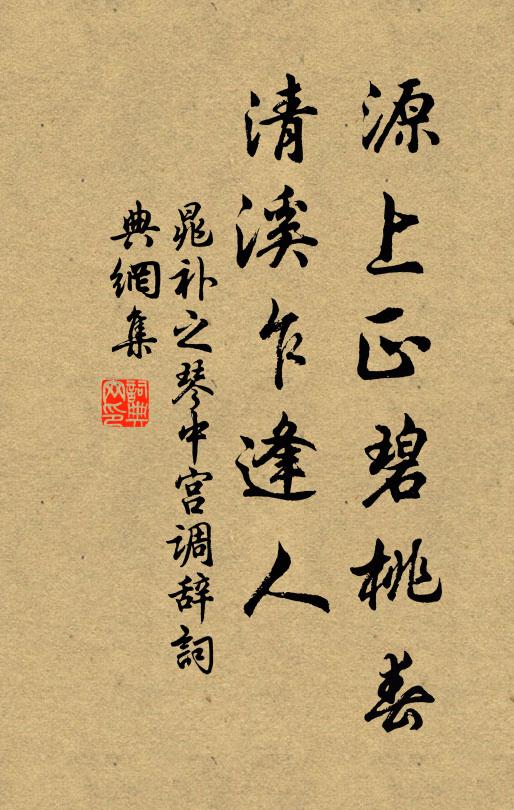 源上正碧桃春
清溪乍逢人
晁补之琴中宫调辞詞
典網集
詞典網印